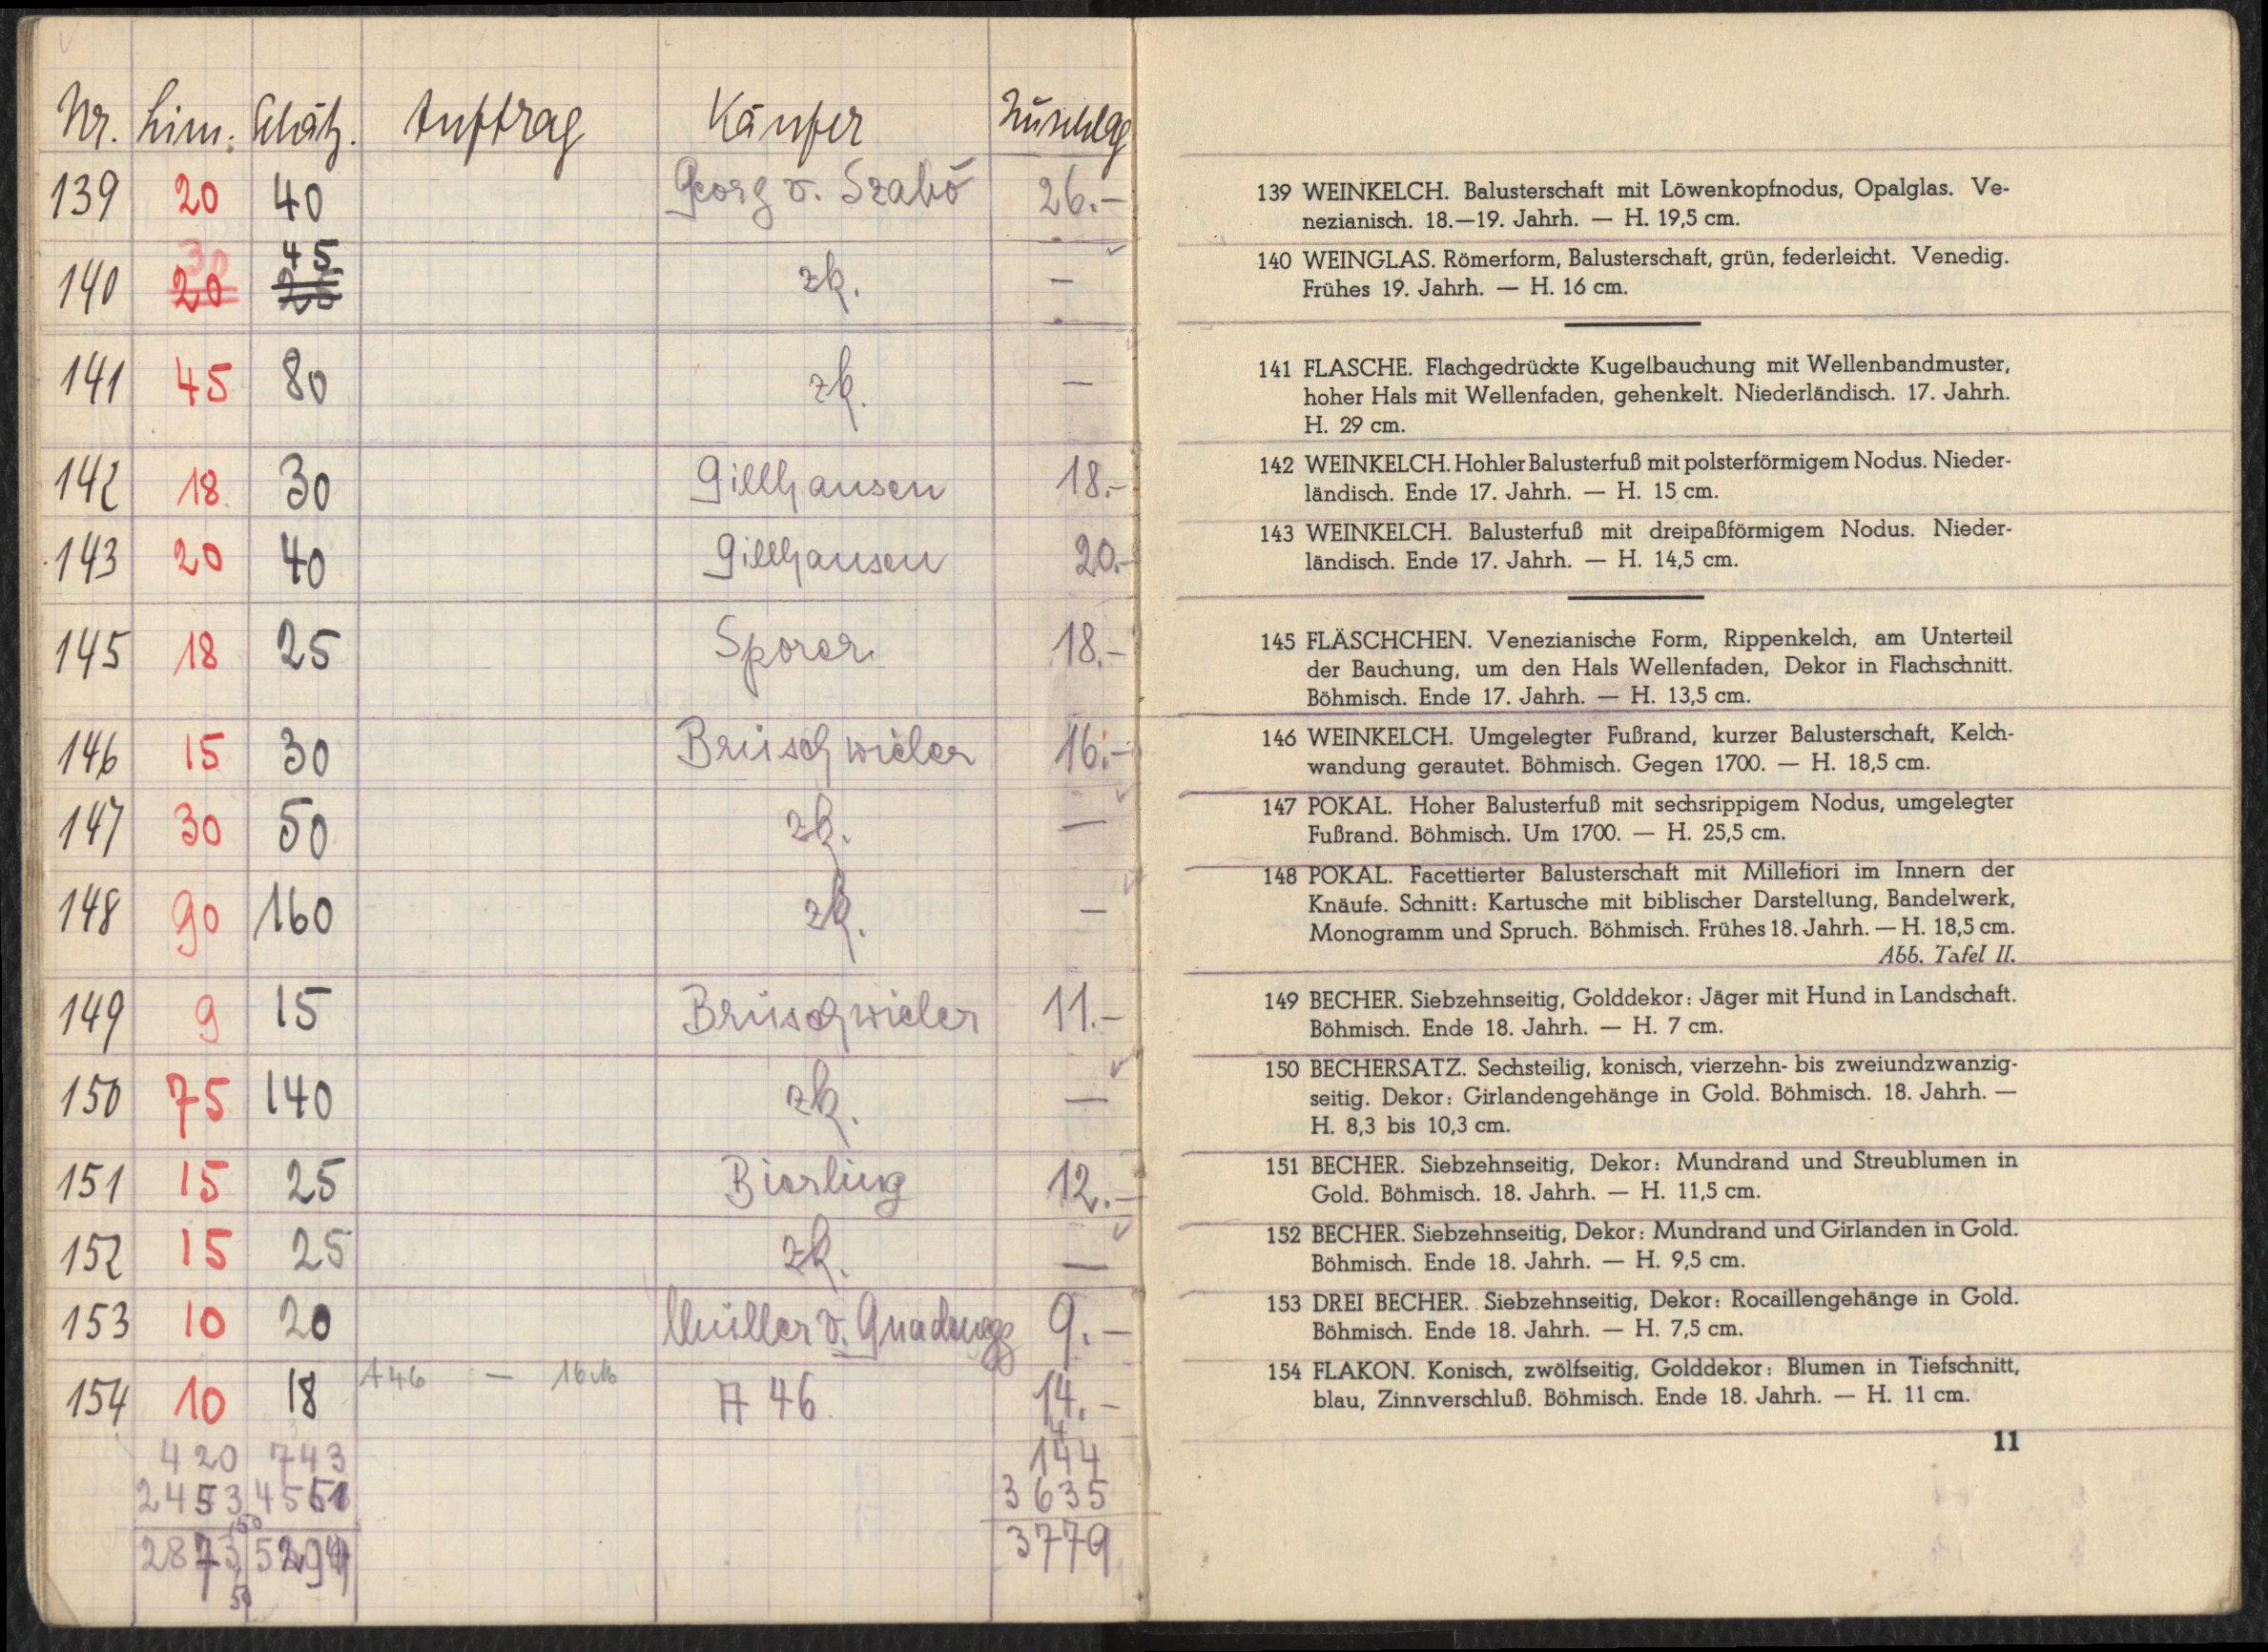 Nr. Lim. Schätz. Auftrag Käufer Zuschlag
139 20 40 Georg v. Szabó 26.-
30 45
140 20 zk. —
141 45 80 zk. —
142 18 30 Gillhausen 18.-
143 20 40 Gillhausen 20.-
145 18 25 Sporer 18.-
146 15 30 Brüschwieler 16.-
147 30 50 zk. —
148 90 160 zk. —
149 9 15 Brüschwieler 11.-
150 75 140 zk. —
151 15 25 Bierling 12.-
152 15 25 zk. —
153 10 20 Müller v. 9.-
154 10 18 A46 — 16 A 46. 14.-
420 743 144
2453,50 3635
2873,50 3779
139 WEINKELCH. Balusterschaft mit Löwenkopfnodus, Opalglas. Ve-
nezianisch. 18.—19. Jahrh. — H. 19,5 cm.
140 WEINGLAS. Römerform, Balusterschaft, grün, federleicht. Venedig.
Frühes 19. Jahrh. — H. 16 cm.
141 FLASCHE. Flachgedrückte Kugelbauchung mit Wellenbandmuster,
hoher Hals mit Wellenfaden, gehenkelt. Niederländisch. 17. Jahrh.
H. 29 cm.
142 WEINKELCH. Hohler Balusterfuß mit polsterförmigem Nodus. Nieder-
ländisch. Ende 17. Jahrh. — H. 15 cm.
143 WEINKELCH. Balusterfuß mit dreipaßförmigem Nodus. Nieder-
ländisch. Ende 17. Jahrh. — H. 14,5 cm.
145 FLÄSCHCHEN. Venezianische Form, Rippenkelch, am Unterteil
der Bauchung, um den Hals Wellenfaden, Dekor in Flachschnitt.
Böhmisch. Ende 17. Jahrh. — H. 13,5 cm.
146 WEINKELCH. Umgelegter Fußrand, kurzer Balusterschaft, Kelch-
wandung gerautet. Böhmisch. Gegen 1700. — H. 18,5 cm.
147 POKAL. Hoher Balusterfuß mit sechsrippigem Nodus, umgelegter
Fußrand. Böhmisch. Um 1700. — H. 25,5 cm.
148 POKAL. Facettierter Balusterschaft mit Millefiori im Innern der
Knäufe. Schnitt: Kartusche mit biblischer Darstellung, Bandelwerk,
Monogramm und Spruch. Böhmisch. Frühes 18. Jahrh. — H. 18,5 cm.
Abb. Tafel II.
149 BECHER. Siebzehnseitig, Golddekor: Jäger mit Hund in Landschaft.
Böhmisch. Ende 18. Jahrh. — H. 7 cm.
150 BECHERSATZ. Sechsteilig, konisch, vierzehn- bis zweiundzwanzig-
seitig. Dekor: Girlandengehänge in Gold. Böhmisch. 18. Jahrh. —
H. 8,3 bis 10,3 cm.
151 BECHER. Siebzehnseitig, Dekor: Mundrand und Streublumen in
Gold. Böhmisch. 18. Jahrh. — H. 11,5 cm.
152 BECHER. Siebzehnseitig, Dekor: Mundrand und Girlanden in Gold.
Böhmisch. Ende 18. Jahrh. — H. 9,5 cm.
153 DREI BECHER. Siebzehnseitig, Dekor: Rocaillengehänge in Gold.
Böhmisch. Ende 18. Jahrh. — H. 7,5 cm.
154 FLAKON. Konisch, zwölfseitig, Golddekor: Blumen in Tiefschnitt,
blau, Zinnverschluß. Böhmisch. Ende 18. Jahrh. — H. 11 cm.
11